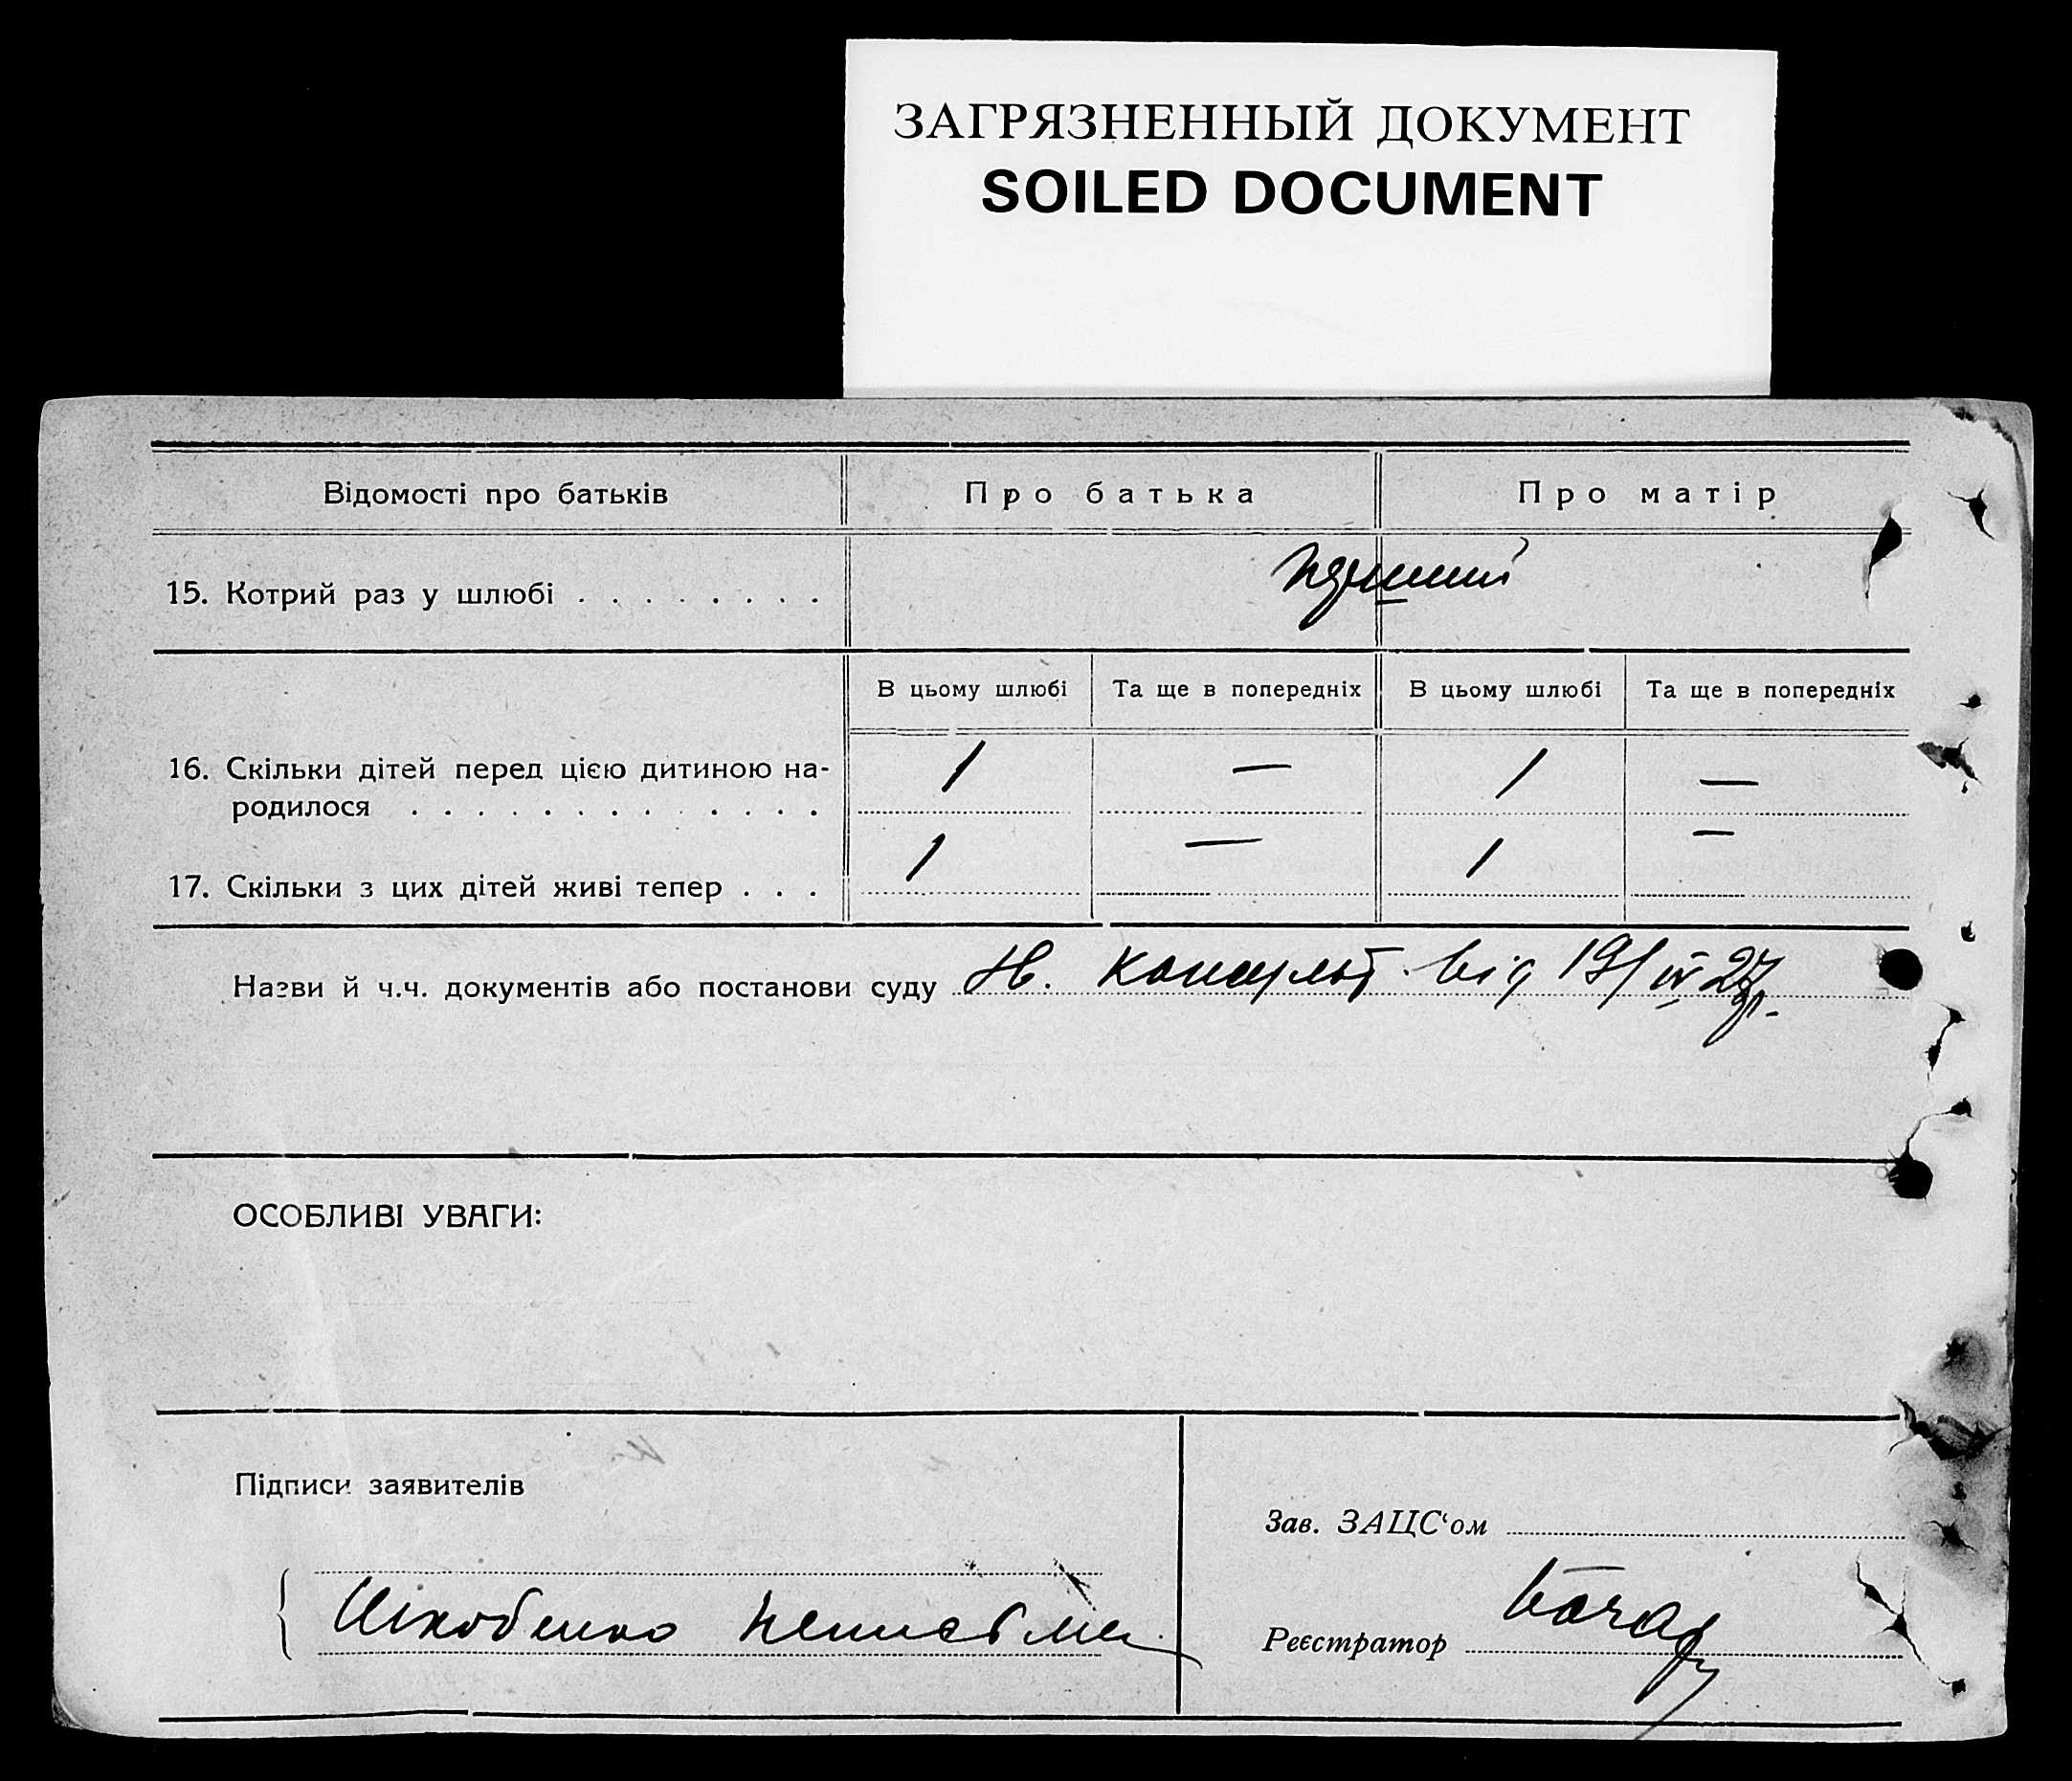 ЗАГРЯЗНЕННЫЙ ДОКУМЕНТ
SOILED DOCUMENT
Відомості про батьків
Про батька
Про матір
15. Котрий раз у шлюбі . . . . . . . .
В цьому шлюбі
Та ще в попередніх
В цьому шлюбі
Та ще в попередніх
16. Скільки дітей перед цією дитиною на-
родилося . . . . . . . . . . . . .
1 — 1 —
17. Скільки з цих дітей живі тепер . . .
1 — 1 —
Назви й ч.ч. документів або постанови суду Ж. консульт. від 19/IV 27р.
ОСОБЛИВІ УВАГИ:
Підписи заявителів
неписьмен.
Зав. ЗАЦС‘ом
Реєстратор